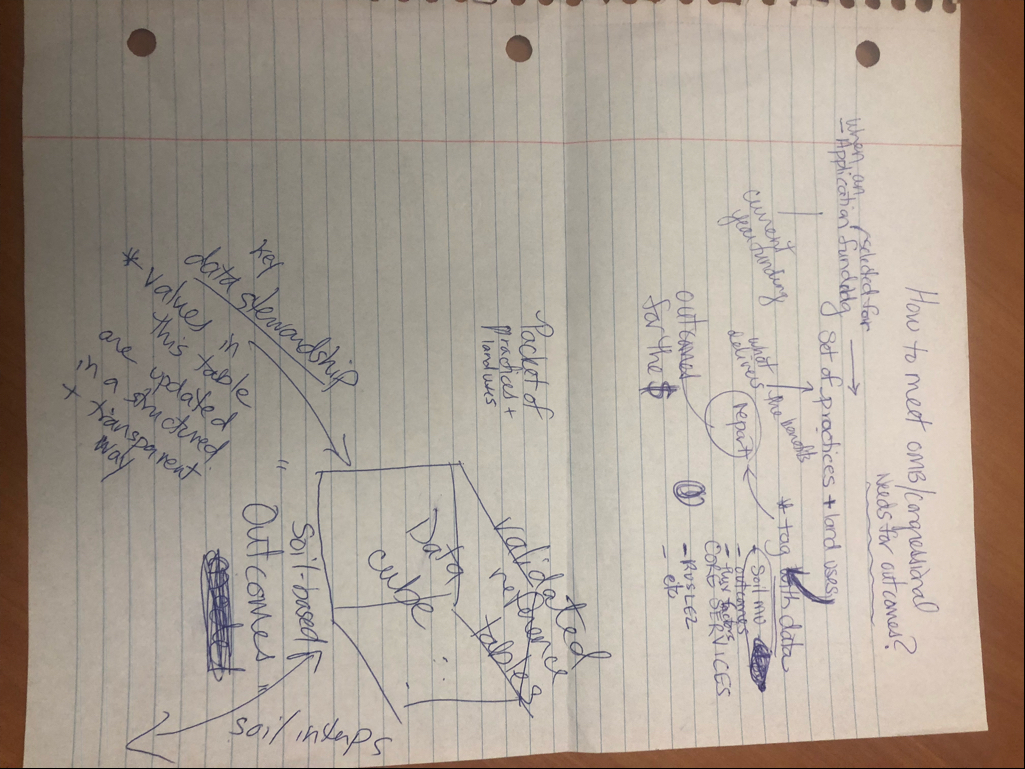 How to meet OMB/Congressional
Needs for outcomes?
when an selected for
- Application funding
Set of practices + land uses
current
year funding
what
delivers the benefits
* tag with data
- Soil MU
- outcomes
- factors
CORE SERVICES
- RUSLE2
- etc
report
outcomes
for the $
Packet of
practices +
land uses
validated
reference
tables
Data
cube
key
data stewardship
* values in
this table
are updated
in a structured
+ transparent
way
"Soil-based
Outcomes"
soil interps